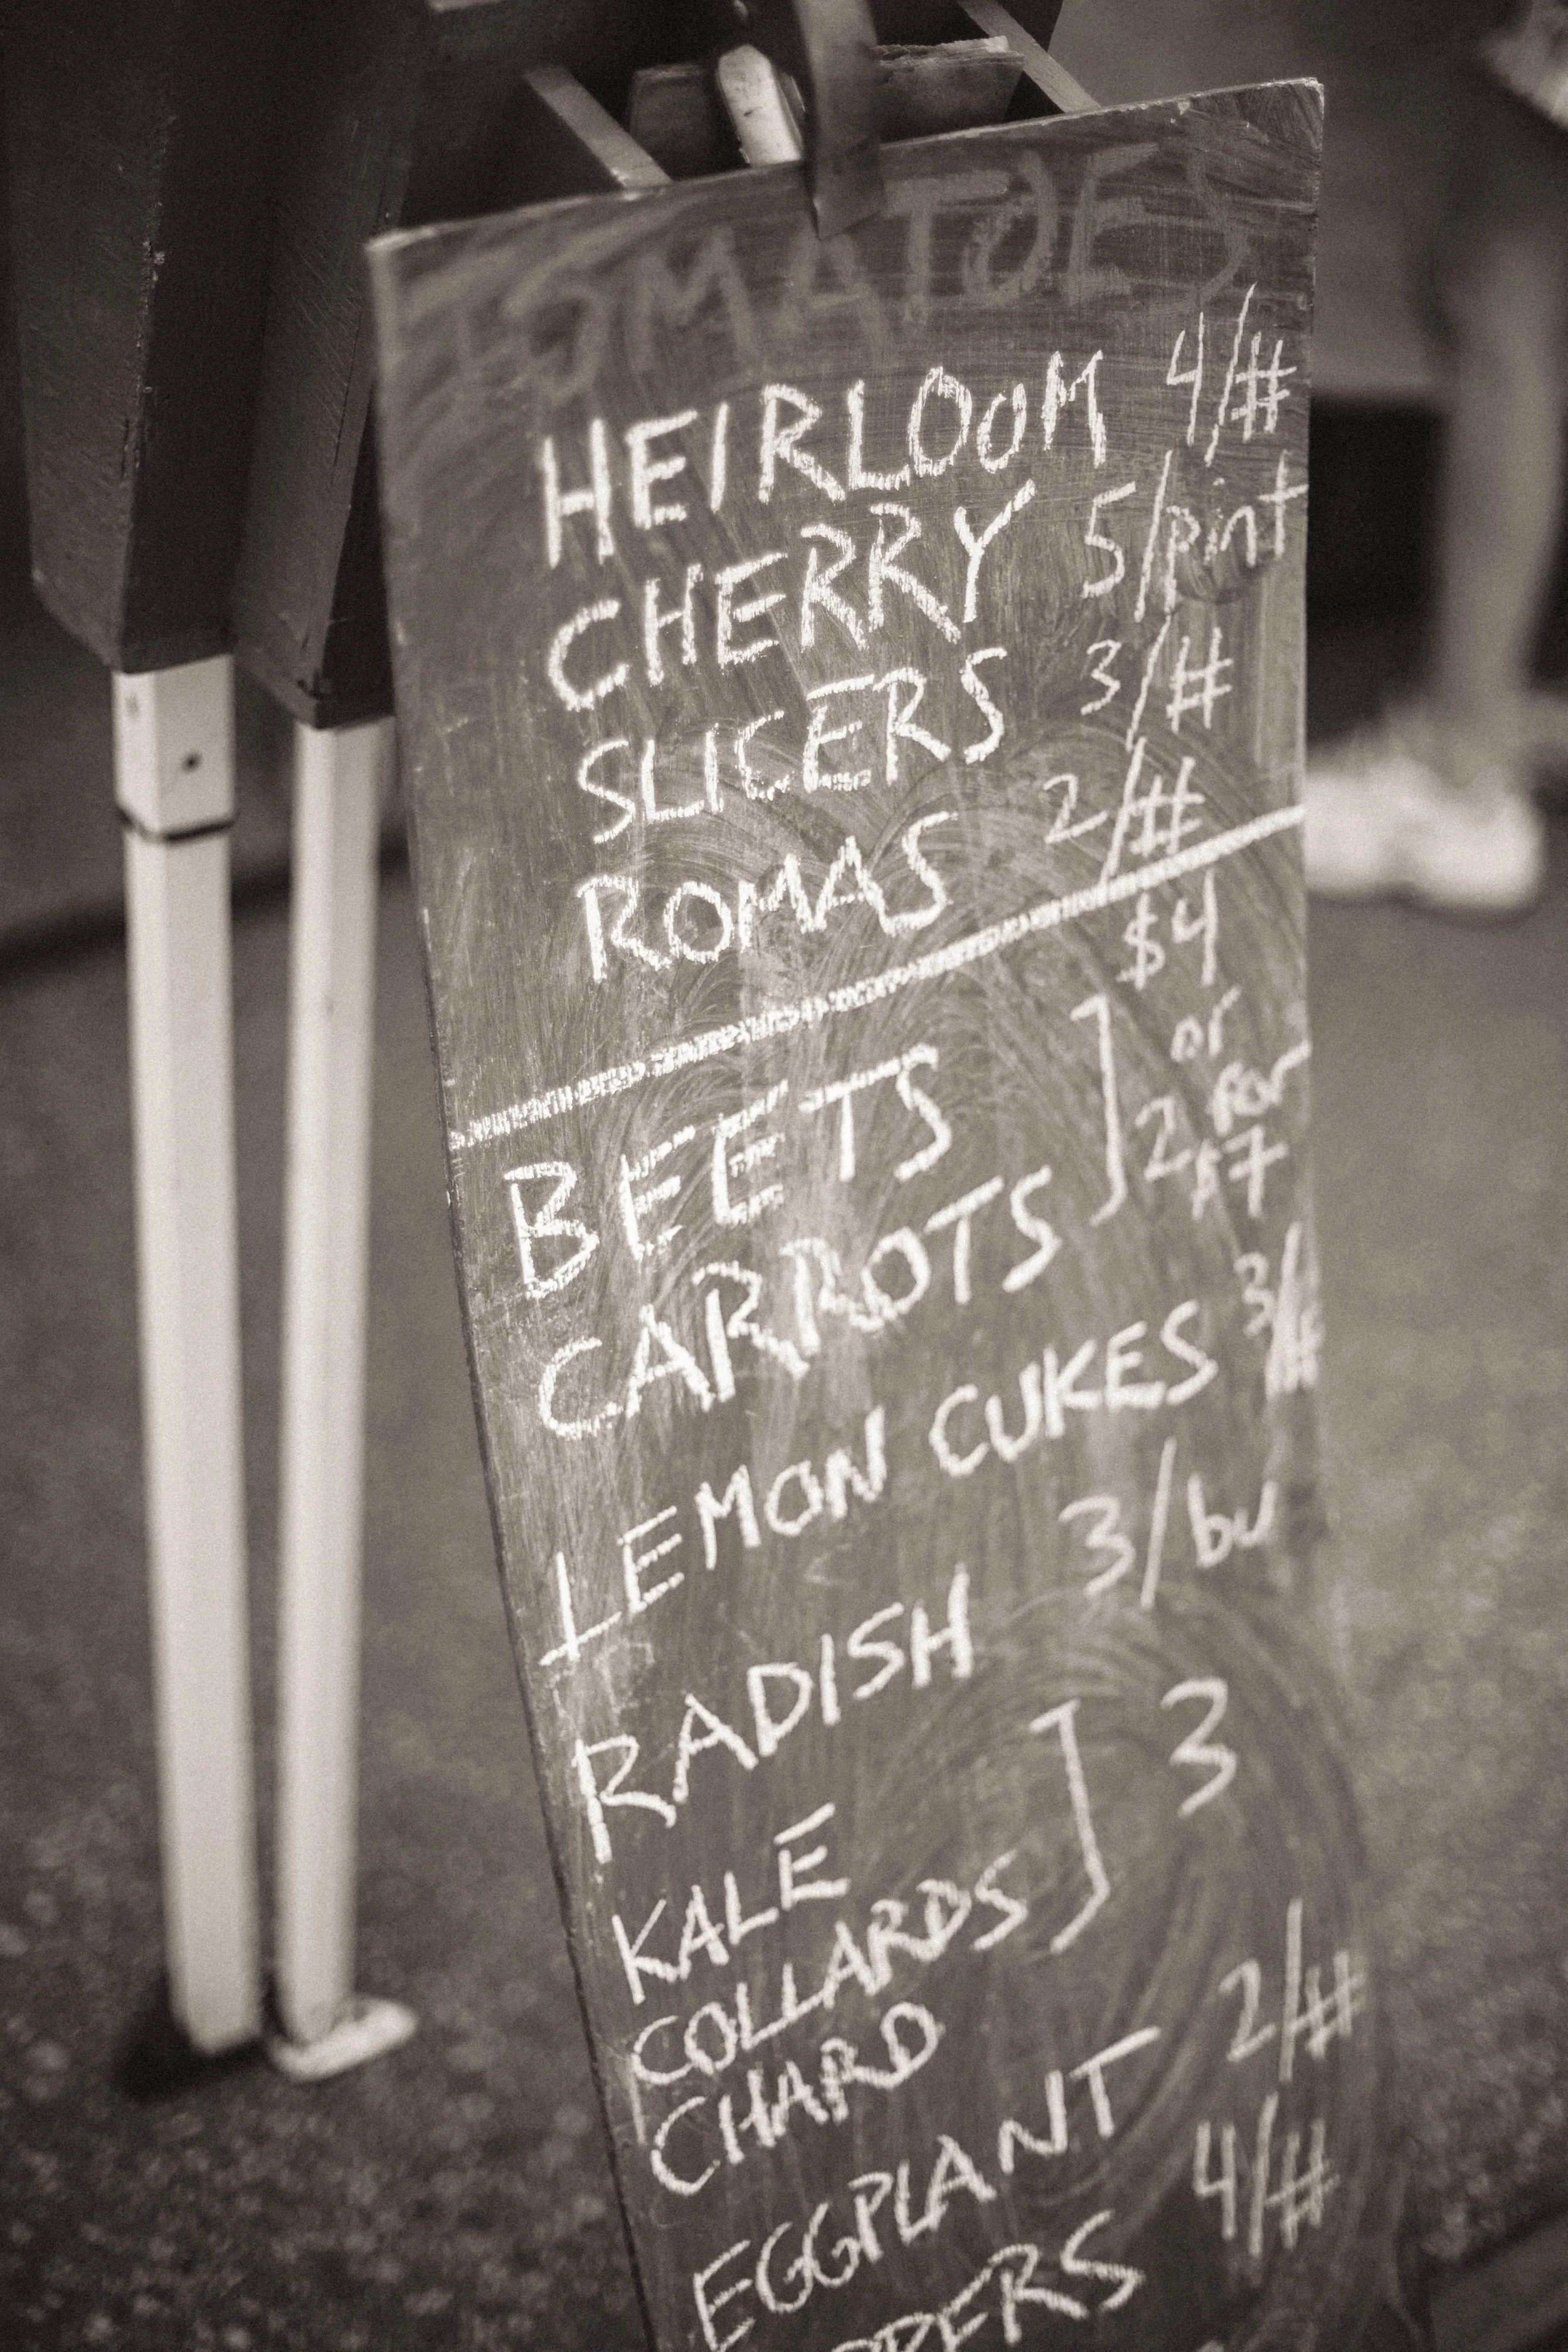 TOMATOES
HEIRLOOM 4/#
CHERRY 5/pint
SLICERS 3/#
ROMAS 2/#
BEETS
CARROTS
] $4
or
2 for
$7
LEMON CUKES 3/#
RADISH 3/bu
KALE
COLLARDS
CHARD
] 3
EGGPLANT 2/#
PPERS 4/#